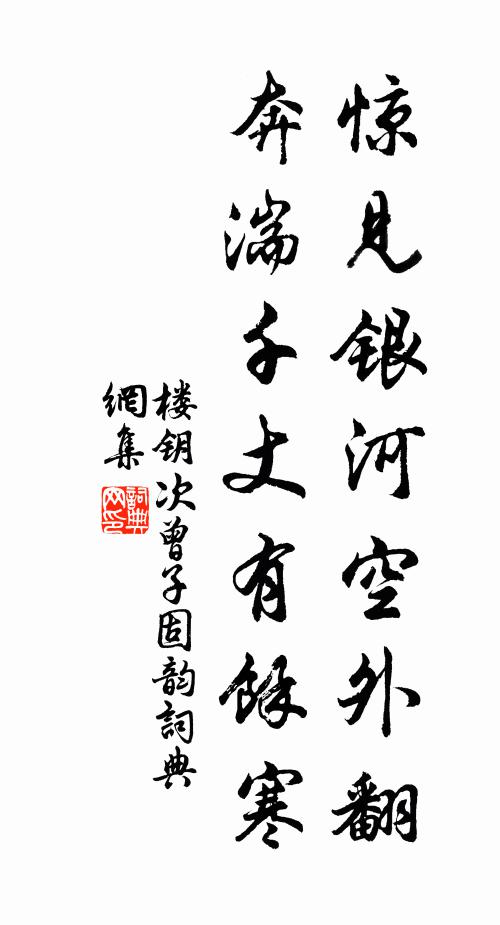 惊见银河空外翻
奔湍千丈有馀寒
楼钥次曾子固韵詞典
網集
詞典
网印